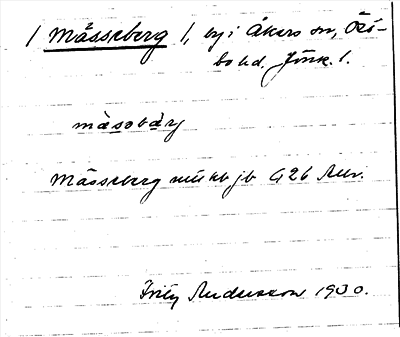 / Mässeberg /, by i Åkers sn, Öst-
bo hd. Jönk. l.
mäsəbärj
Mässeberg mtl jb 926 Anr.
Fritz Andersson 1930.